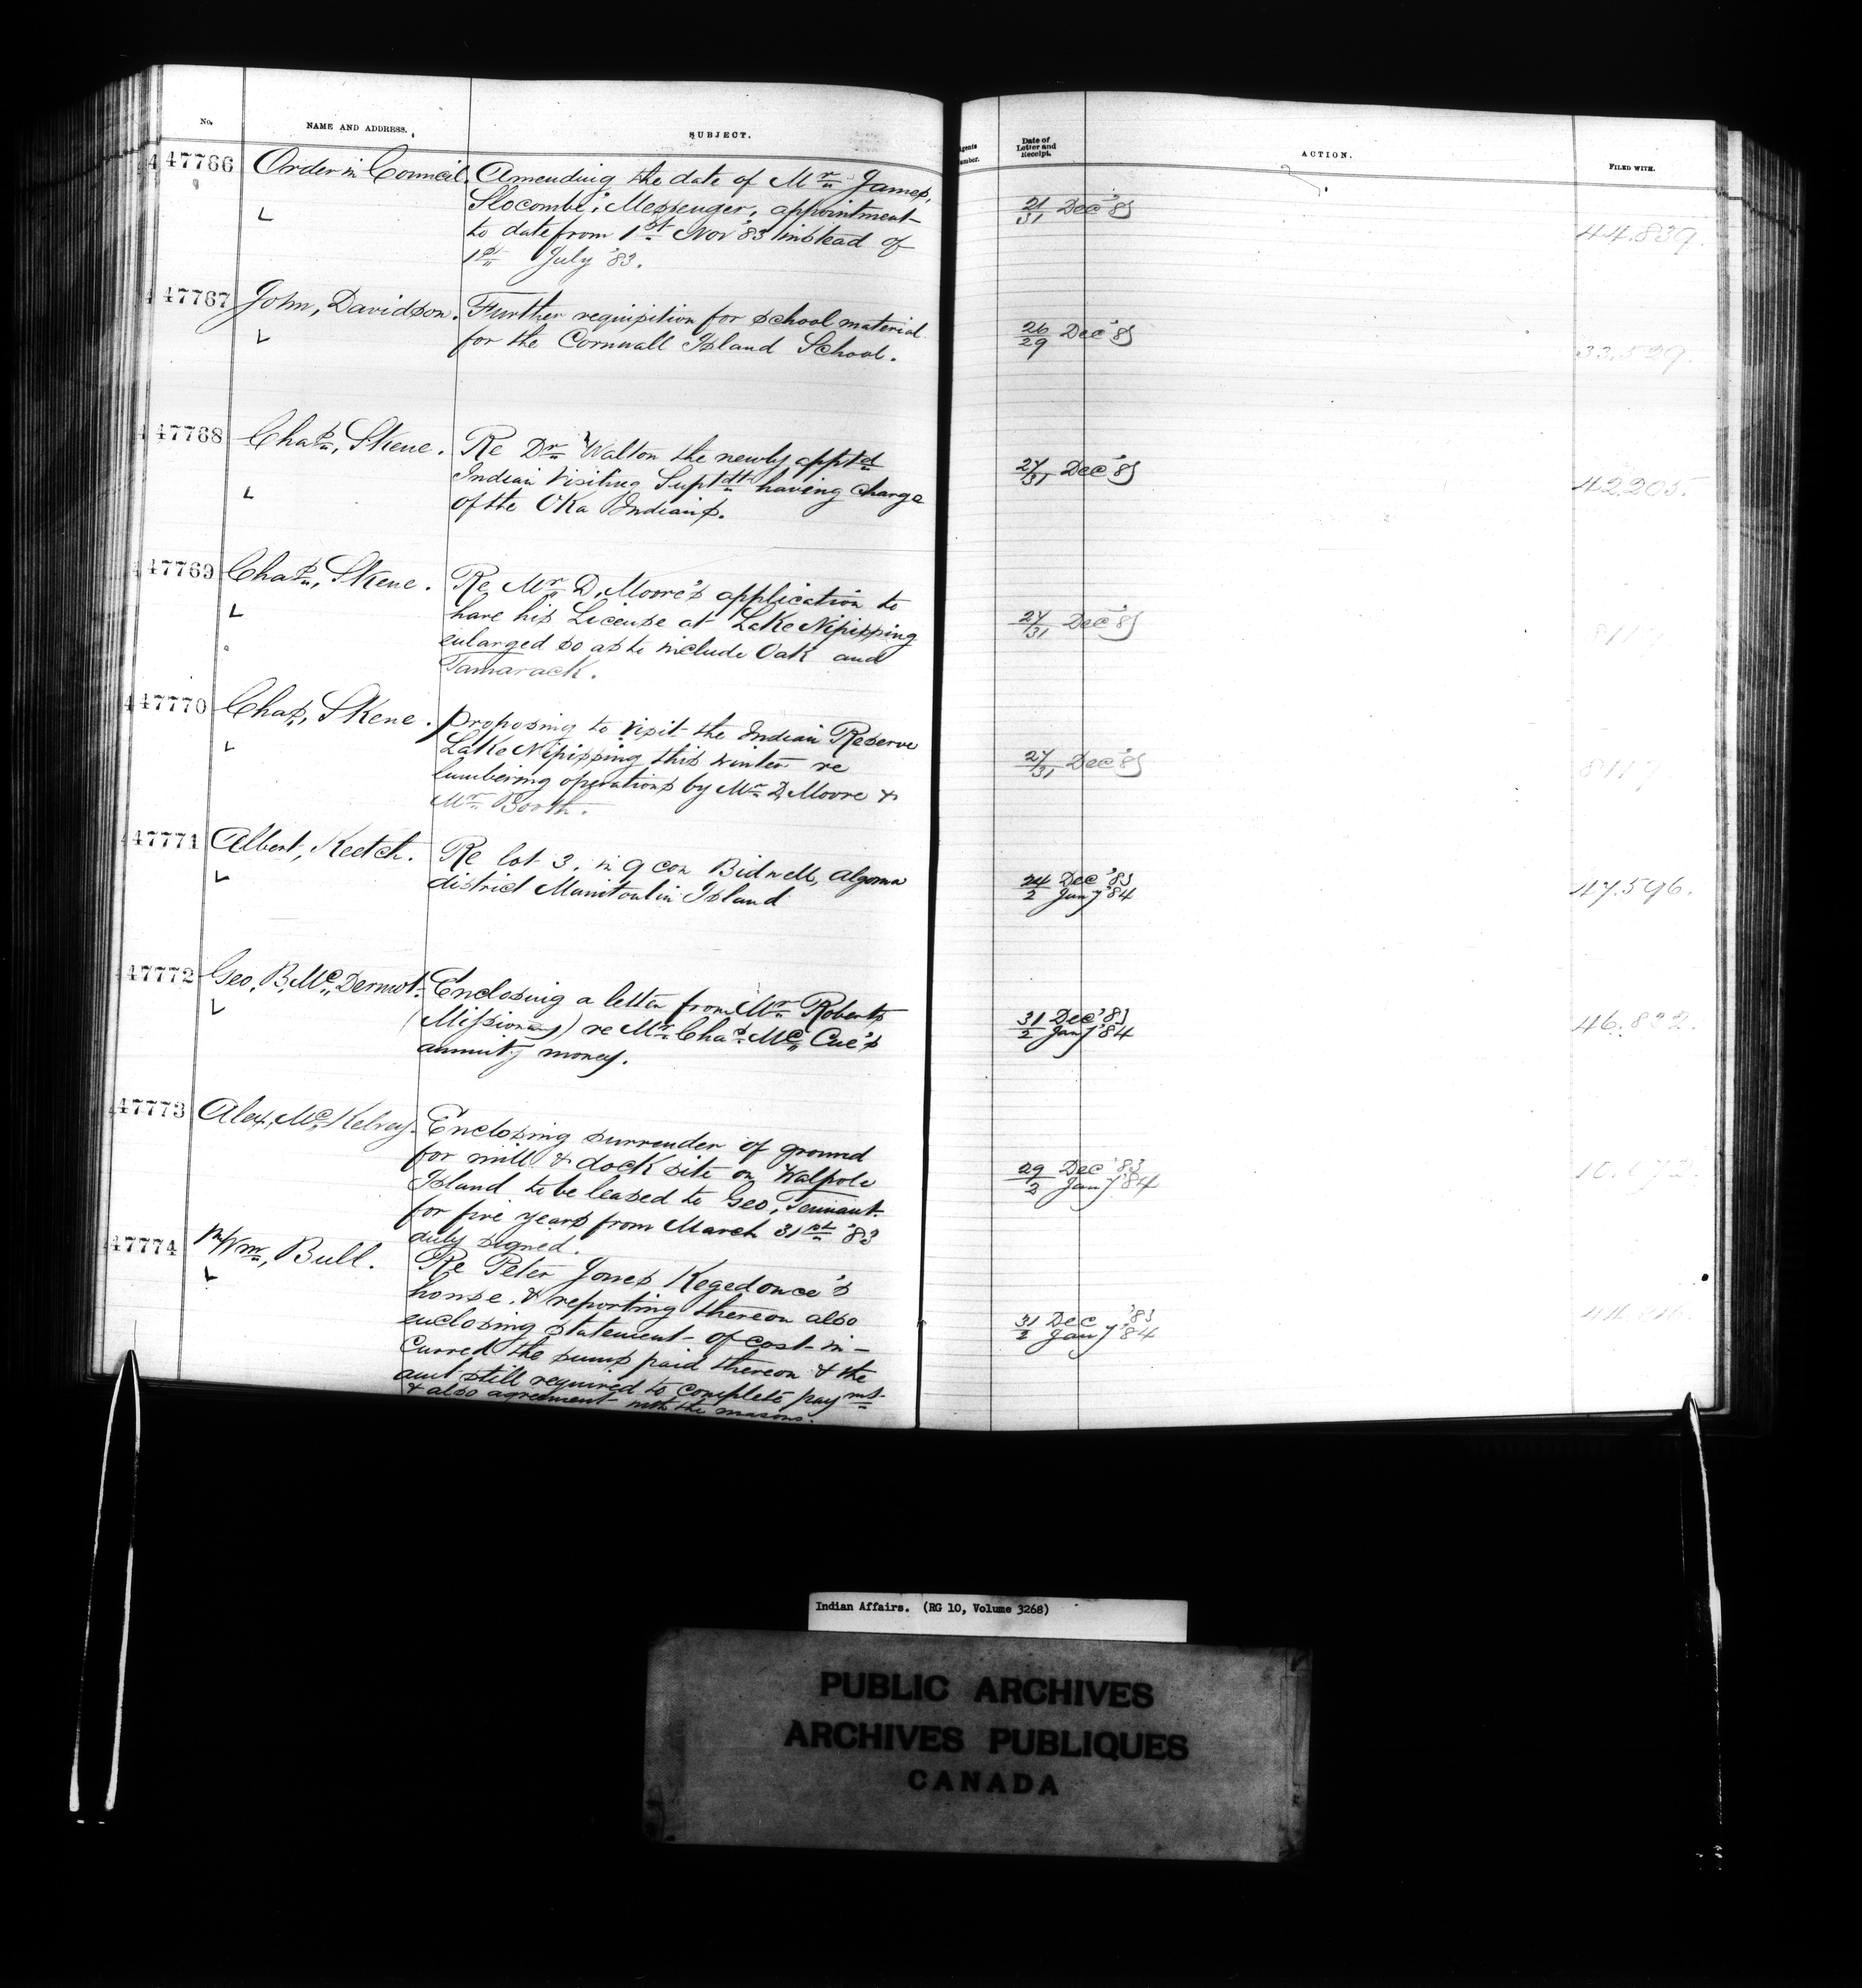 No.
NAME AND ADDRESS.
SUBJECT.
Agents
Number.
Date of
Letter and
Receipt.
ACTION.
FILED WITH.
47766
Order in Council.
Amending the date of Mr James,
Slocombe, Messenger, appointment
to date from 1st Nov '83 instead of
1st July '83.
21/31 Dec '83
44.839.
47767
John, Davidson.
Further requisition for school material
for the Cornwall Island School.
26/29 Dec '83
33.529.
47768
Chas, Skene.
Re Dr Walton the newly apptd
Indian Visiting Suptdt having charge
of the Oka Indians.
27/31 Dec '83
42205.
47769
Chas, Skene.
Re Mr D. Moore's application to
have his License at Lake Nipissing
enlarged so as to include Oak and
Tamarack.
27/31 Dec '83
47770
Chas, Skene.
proposing to visit the Indian Reserve
Lake Nipissing this winter re
lumbering operations by Mr D. Moore &
Mr Booth.
27/31 Dec '83
8117
47771
Albert, Keetch.
Re lot 3, in 9 con Bidwell, Algoma
district Manitoulin Island
24 Dec '83
2 Jany '84
47.596.
47772
Geo. B. McDermot.
Enclosing a letter from Mr Roberts
(Missionary) re Mr Chas McCue's
annuity money.
31 Dec '83
2 Jany '84
46.832.
47773
Alex, McKelvey.
Enclosing surrender of ground
for mill & dock site on Walpole
Island to be leased to Geo, Tennant
for five years from March 31st '83
duly signed.
29 Dec '83
2 Jany '84
47774
Wm, Bull.
Re Peter Jones Kegedonce's
house, & reporting thereon also
enclosing statement of cost in-
curred the sums paid thereon & the
amt still required to complete paymt
& also agreement with the masons.
31 Dec '83
2 Jany '84
Indian Affairs. (RG 10, Volume 3268)
PUBLIC ARCHIVES
ARCHIVES PUBLIQUES
CANADA